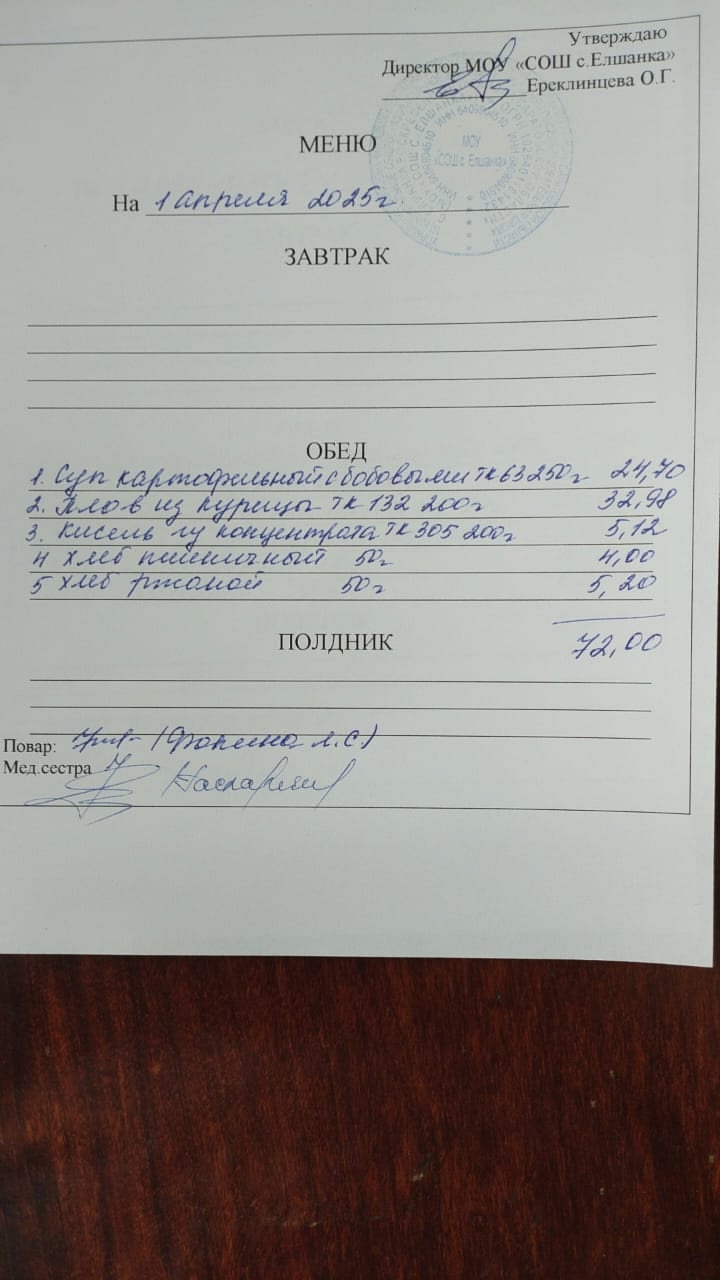 Утверждаю
Директор МОУ «СОШ с.Елшанка»
Ереклинцева О.Г.
МОУ
«СОШ с. Елшанка»
МЕНЮ
На 1 апреля 2025г.
ЗАВТРАК
ОБЕД
1. Суп картофельный с бобовыми тк 63 250г 24,70
2. Плов из курицы тк 132 200г 32,98
3. Кисель из концентрата тк 305 200г 5,12
4 хлеб пшеничный 50г 4,00
5 хлеб ржаной 50г 5,20
72,00
ПОЛДНИК
Повар: (Фокина Л.С)
Мед.сестра